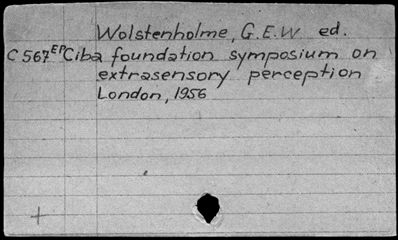 Wolstenholme, G.E.W ed.
C567EP Ciba foundation symposium on
extrasensory perception
London, 1956